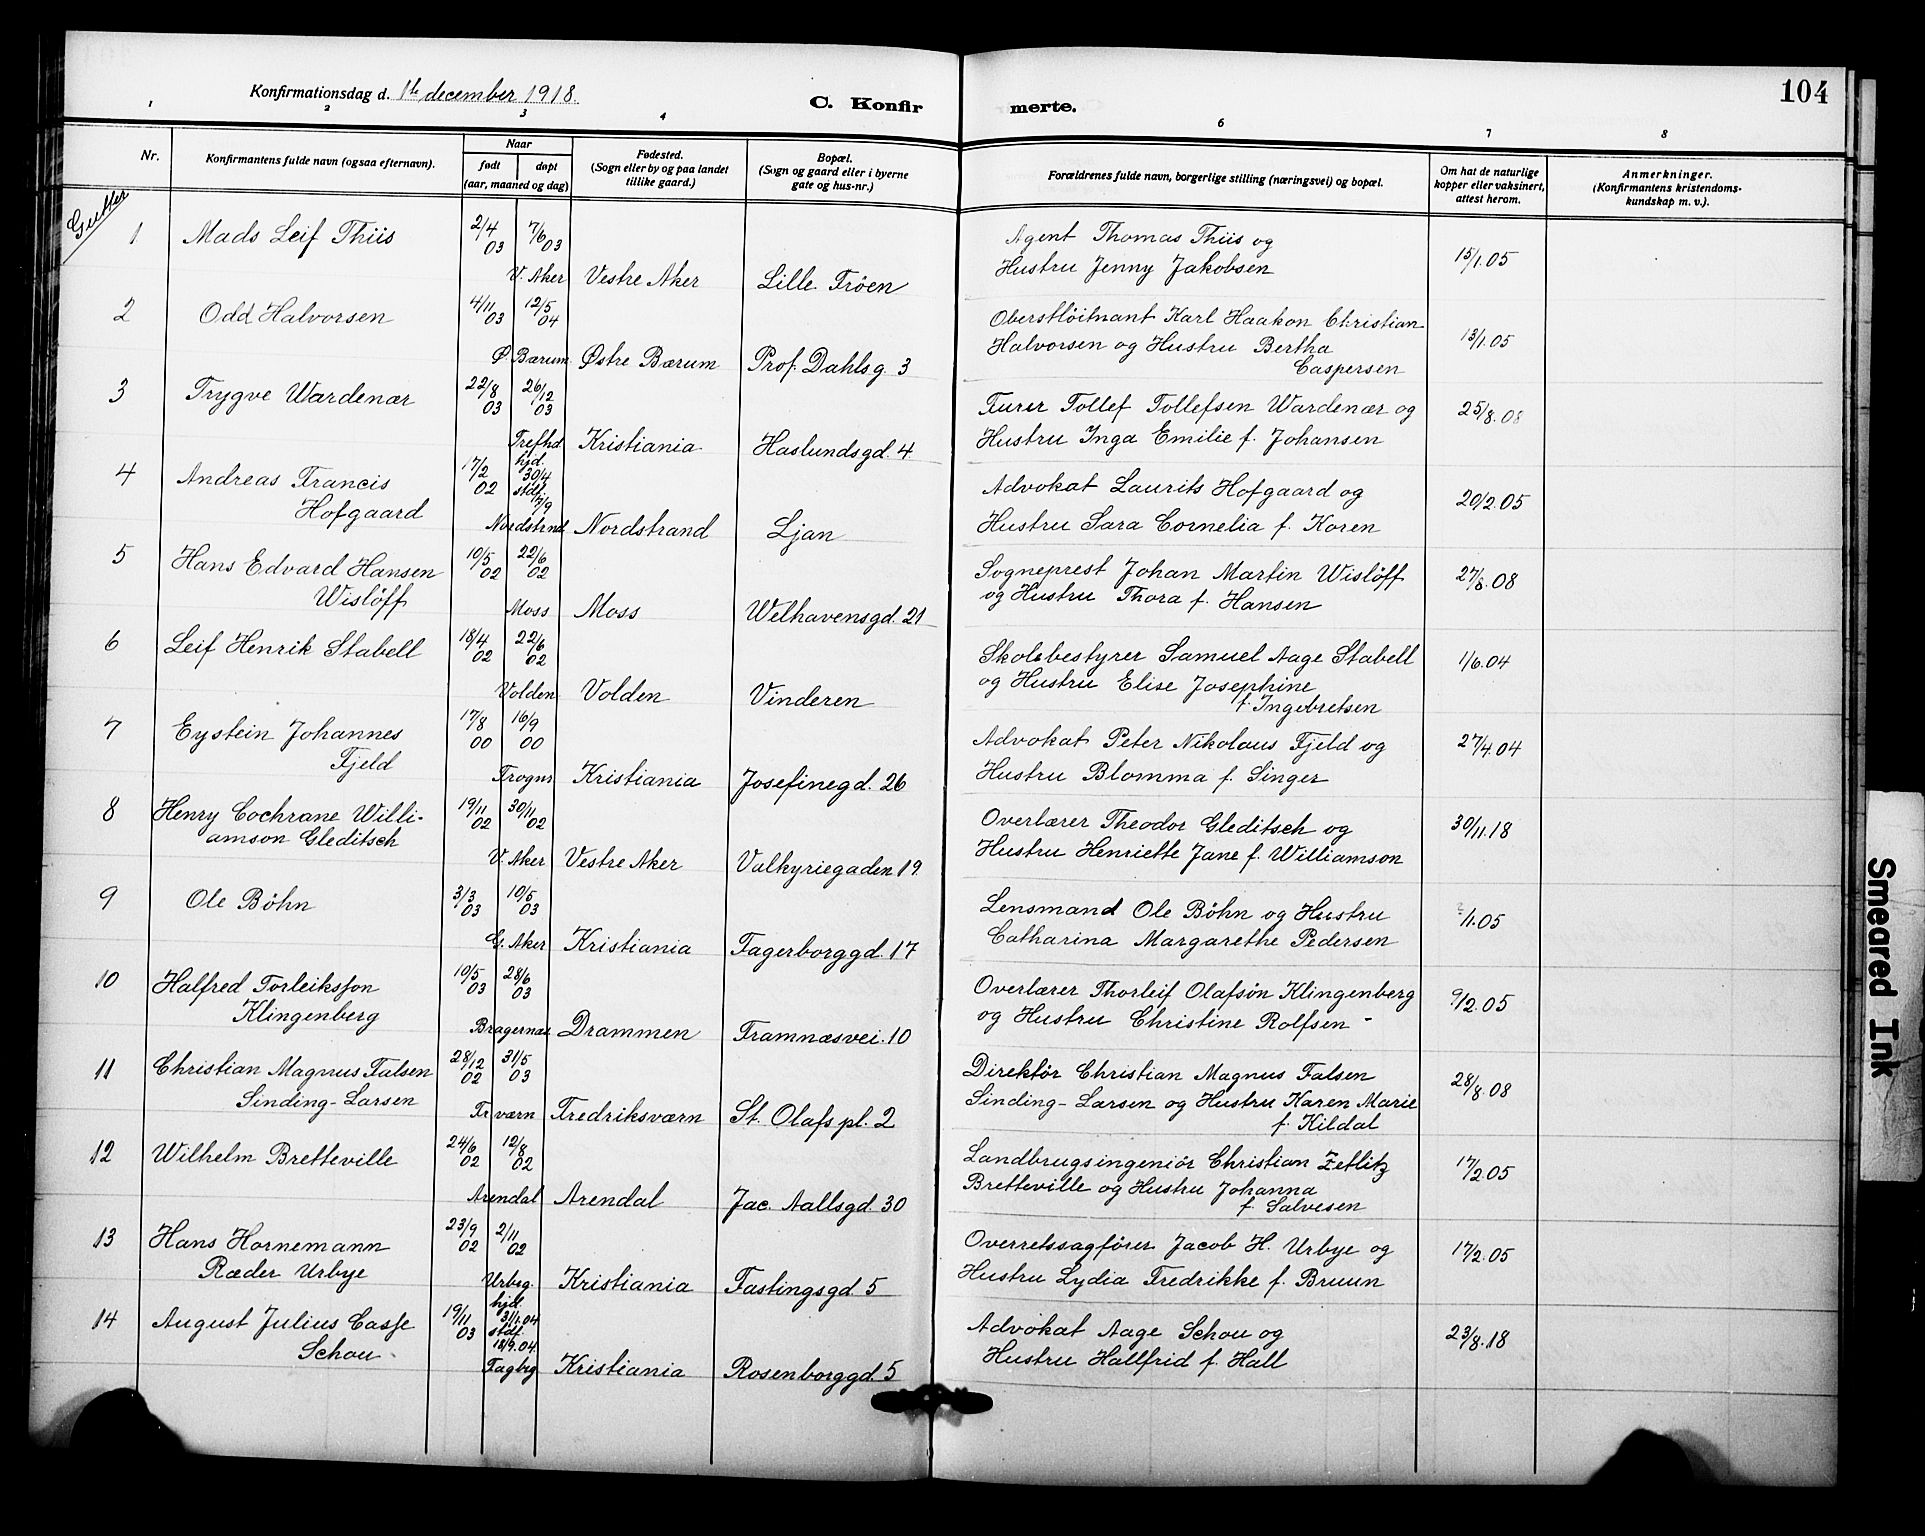 104
Konfirmationsdag d. 1ste december 1918.
C. Konfirmerte.
1 2 3 4 6 7 8
Nr.
Konfirmantens fulde navn (ogsaa efternavn).
Naar
født døpt
(aar, maaned og dag)
Fødested.
(Sogn eller by og paa landet
tillike gaard.)
Bopæl.
(Sogn og gaard eller i byerne
gate og hus-nr.)
Forældrenes fulde navn, borgerlige stilling (næringsvei) og bopæl.
Om hat de naturlige
kopper eller vaksinert,
attest herom.
Anmerkninger.
(Konfirmantens kristendoms-
kundskap m. v.).
Gutter
1 Mads Leif Thiis 2/4 03 7/6 03 Agent Thomas Thiis og 15/1.05
V. Aker Vestre Aker Lille Frøen Hustru Jenny Jakobsen
2 Odd Halvorsen 4/11 03 12/5 04 Oberstløitnant Karl Haakon Christian 13/1.05
Ø. Bærum Østre Bærum Prof. Dahlsg. 3 Halvorsen og Hustru Bertha
Caspersen
3 Trygve Wardenær 22/8 03 26/12 03 Furer Tollef Tollefsen Wardenær og 25/8.08
Trefhd Kristiania Haslundsgd. 4 Hustru Inga Emilie f. Johansen
4 Andreas Francis 17/2 02 hjd. 30/4 stdf. 7/9 Advokat Laurits Hofgaard og 20/2.05
Hofgaard Nordstrnd Nordstrand Ljan Hustru Sara Cornelia f. Koren
5 Hans Edvard Hansen 10/5 02 22/6 02 Sogneprest Johan Martin Wisløff 27/8.08
Wisløff Moss Moss Welhavensgd. 21 og Hustru Thora f. Hansen
6 Leif Henrik Stabell 18/4 02 22/6 02 Skolebestyrer Samuel Aage Stabell 1/6.04
Volden Volden Vinderen og Hustru Elise Josephine
f. Ingebretsen
7 Eystein Johannes 17/8 00 16/9 00 Advokat Peter Nikolaus Fjeld og 27/4.04
Fjeld Frogner Kristiania Josefinegd. 26 Hustru Blomma f. Singer
8 Henry Cochrane Willi- 19/11 02 30/11 02 Overlærer Theodor Gleditsch og 30/11.18
amson Gleditsch V. Aker Vestre Aker Valkyriegaden 19. Hustru Henriette Jane f. Williamson
9 Ole Bøhn 3/3 03 10/5 03 Lensmand Ole Bøhn og Hustru /1.05
G. Aker Kristiania Fagerborggd. 17 Catharina Margarethe Pedersen
10 Halfred Torleiksson 10/5 03 28/6 03 Overlærer Thorleif Olafsøn Klingenberg 9/2.05
Klingenberg Bragernæs Drammen Framnæsvei. 10 og Hustru Christine Rolfsen -
11 Christian Magnus Falsen 28/12 02 31/5 03 Direktør Christian Magnus Falsen 28/8.08
Sinding-Larsen Fr.værn Fredriksværn St. Olafs pl. 2 Sinding-Larsen og Hustru Karen Marie
f. Kildal
12 Wilhelm Bretteville 24/6 02 12/8 02 Landbrugsingeniør Christian Zetlitz 17/2.05
Arendal Arendal Jac. Aallsgd. 30 Bretteville og Hustru Johanna
f. Salvesen
13 Hans Hornemann 23/9 02 2/11 02 Overretssagfører Jacob H. Urbye og 17/2.05
Ræder Urbye Urbrg. Kristiania Fastingsgd. 5 Hustru Lydia Fredrikke f. Bruun
14 August Julius Casse 19/11 03 hjd. 31/1.04 stdf. 18/9.04 Advokat Aage Schou og 23/8.18
Schou Fagbrg Kristiania Rosenborggd. 5 Hustru Hallfrid f. Hall
Smeared Ink